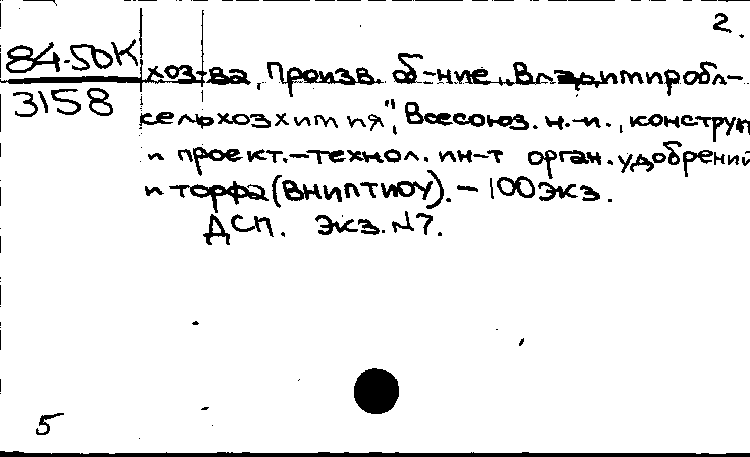 2.
84-50К
3158
хоз-ва, Произв. об-ние „Владимироблсельхозхимия", Всесоюз. н.-и., конструк
и проект.-технол. ин-т орган. удобрений
и торфа (ВНИПТИОУ). – 100 экз.
ДСП. Экз. №7.
5